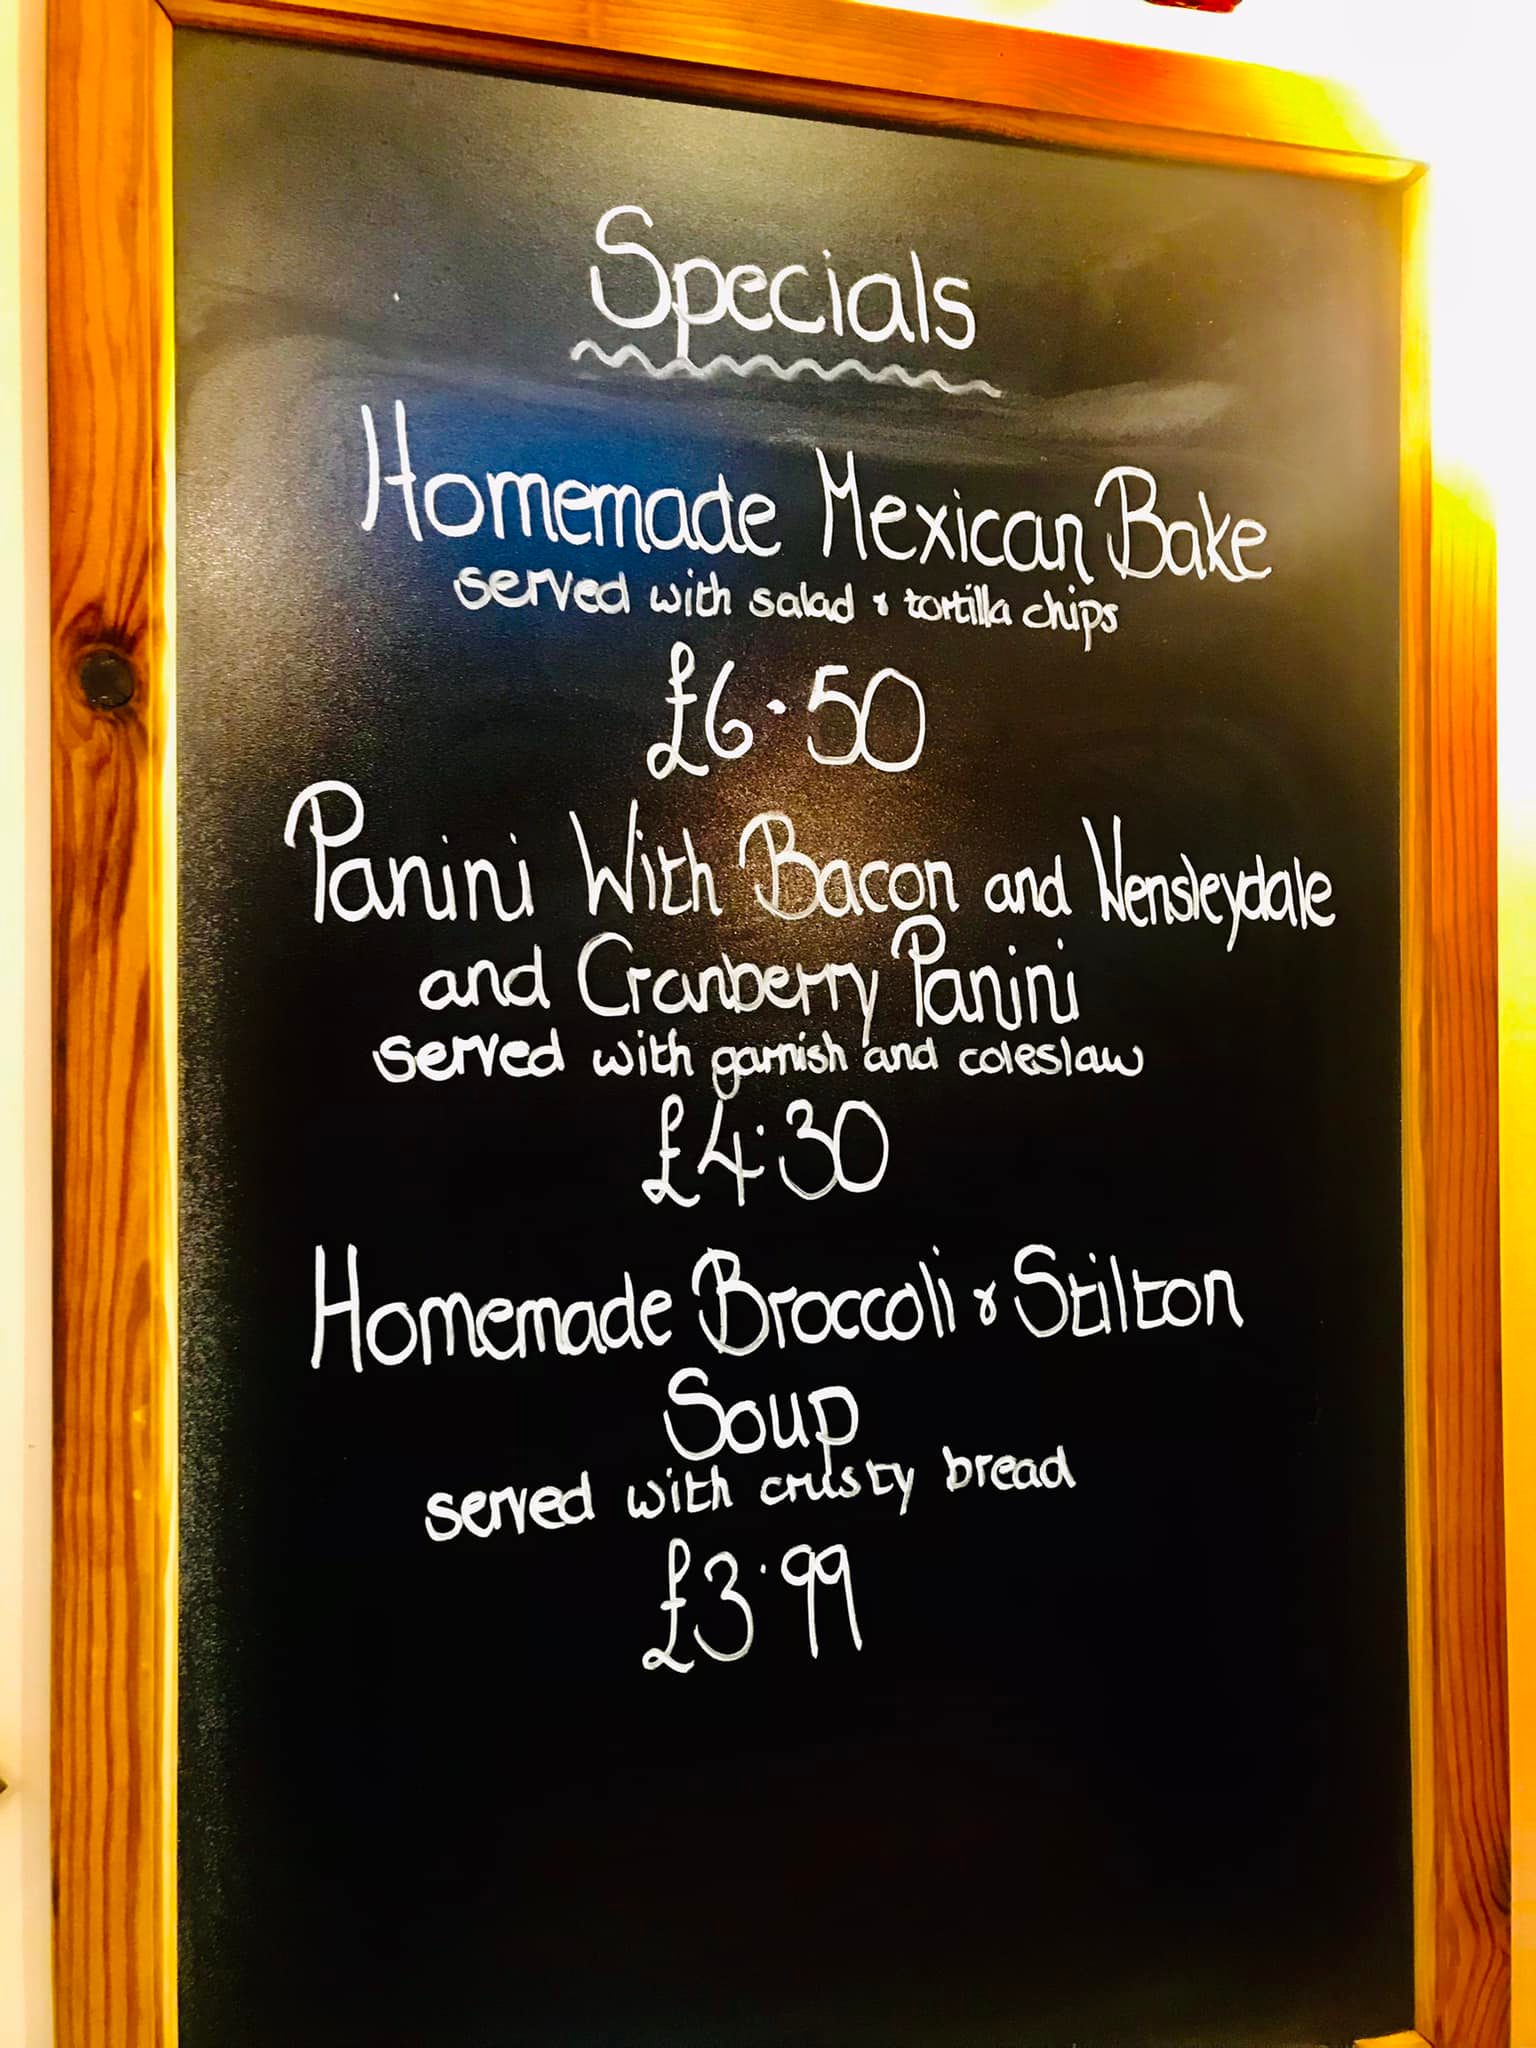 Specials
Homemade Mexican Bake
served with salad & tortilla chips
£6.50
Panini With Bacon and Wensleydale
and Cranberry Panini
served with garnish and coleslaw
£4.30
Homemade Broccoli & Stilton
Soup
served with crusty bread
£3.99